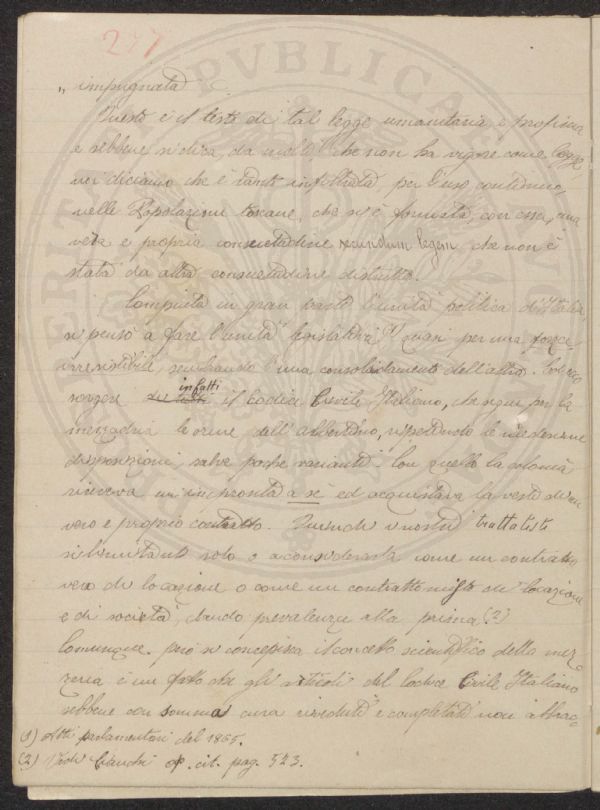 237
„ impugnata
Questo è il testo di tal legge umanitaria, e profima
e sebbene si dica, da molti che non ha vigore come legge
noi diciamo che è tanto infiltrata per l'uso continuo,
nelle Popolazioni toscane, che si è formata, con essa, una
vera e propria consuetudine secundum legem, che non è
stata da altra consuetudine distrutta.
Compiuta in gran parte l'unità politica d'Italia,
si pensò a fare l'unità legislativa (1) quasi per una forza
irresistibile, sembrando l'una consolidamento dell'altra.
sorgere infatti il Codice Civile Italiano, che segue per la
mezzadria le orme dell'Albertino, ripetendo le medesime
disposizioni, salve poche varianti. Con quello la colonìa
riceveva un'impronta a sè ed acquistava la veste di un
vero e proprio contratto. Quindi i nostri trattatisti
si limitano solo o a considerarla come un contratto
vero di locazione o come un contratto misto di locazione
e di società, dando prevalenza alla prima (2)
Comunque però si concepisca il concetto scientifico della mez-
zeria è un fatto che gli articoli del Codice Civile Italiano
sebbene con somma cura riveduti e completati non abbrac-
(1) Atti parlamentari del 1865.
(2) Vedi op. cit. pag. 523.
REPVBLICA